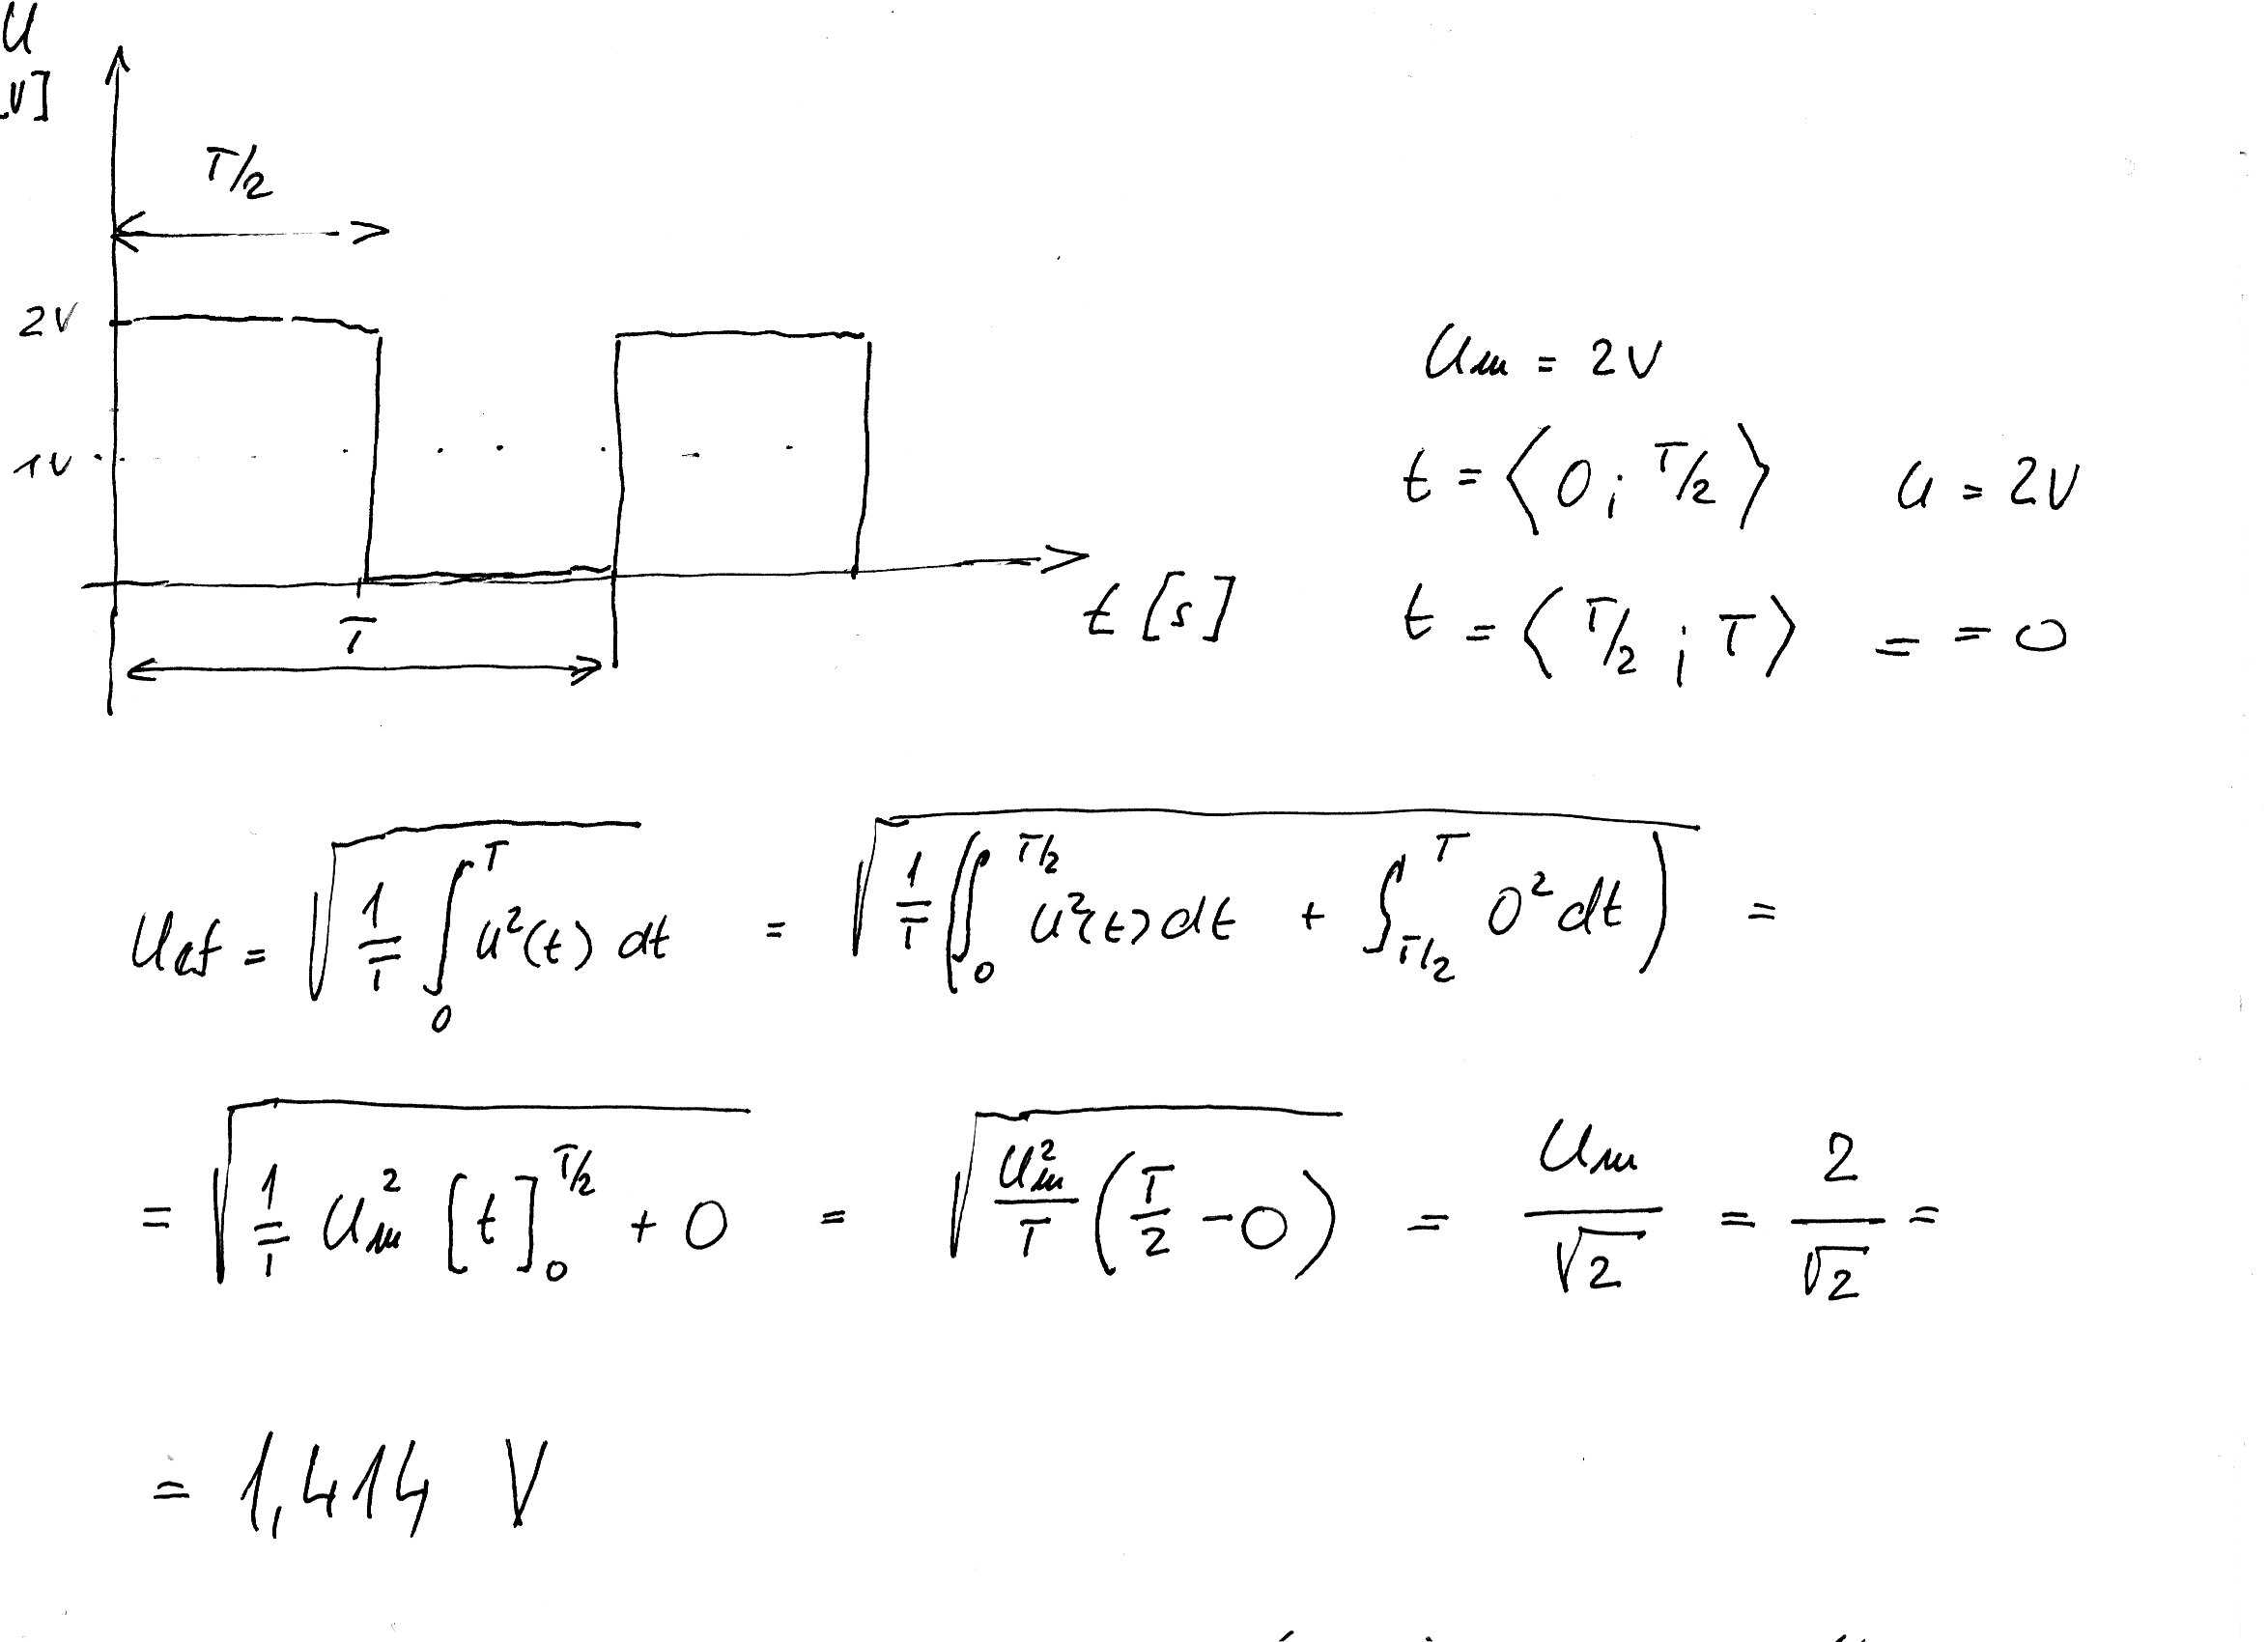 U
[V]
T/2
2V
1V
T
t [s]
Um = 2V
t = ⟨0; T/2⟩ u = 2V
t = ⟨T/2; T⟩ = = 0
Uef = √(1/T ∫₀ᵀ u²(t) dt) = √(1/T (∫₀^(T/2) u²(t) dt + ∫_(T/2)^T 0² dt)) =
= √(1/T Um² [t]₀^(T/2) + 0) = √(Um²/T (T/2 - 0)) = Um/√2 = 2/√2 =
= 1,414 V